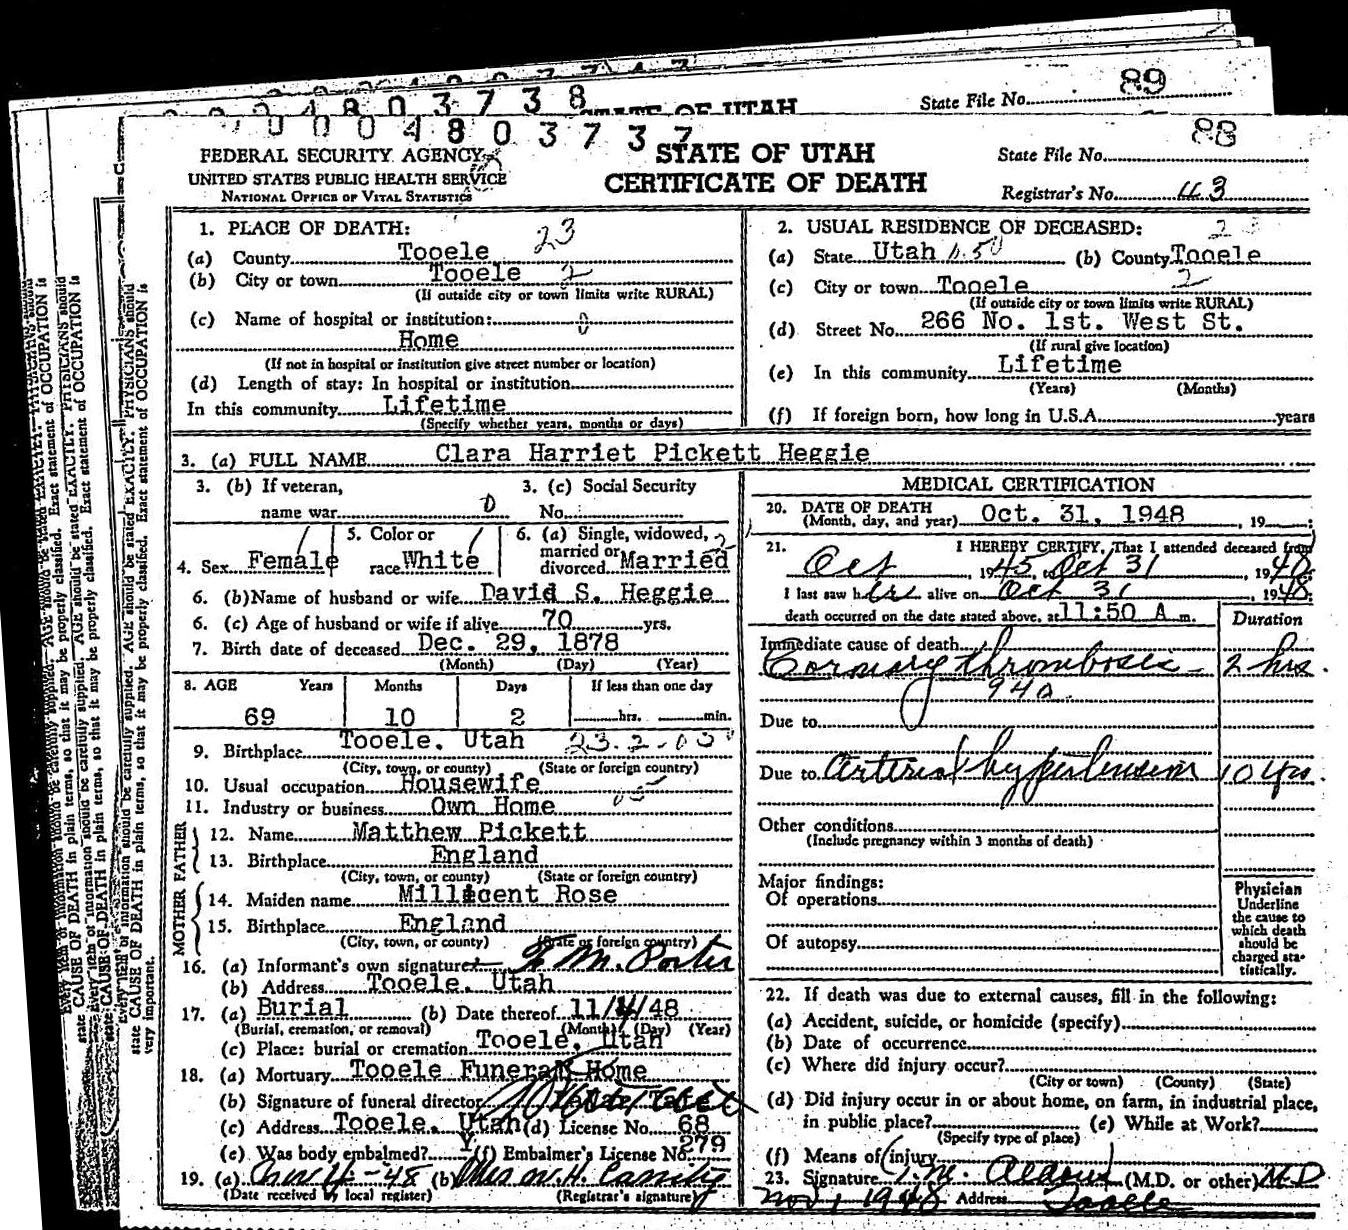 89
State File No.
0 0 4 8 0 3 7 3 8
STATE OF UTAH
88
0 0 0 4 8 0 3 7 3 7
State File No.
FEDERAL SECURITY AGENCY
UNITED STATES PUBLIC HEALTH SERVICE
NATIONAL OFFICE OF VITAL STATISTICS
STATE OF UTAH
CERTIFICATE OF DEATH
Registrar's No. 43
1. PLACE OF DEATH: 23
(a) County Tooele
(b) City or town Tooele 2
(If outside city or town limits write RURAL)
(c) Name of hospital or institution: 0
Home
(If not in hospital or institution give street number or location)
(d) Length of stay: In hospital or institution
In this community Lifetime
(Specify whether years, months or days)
2. USUAL RESIDENCE OF DECEASED:
(a) State Utah (b) County Tooele
(c) City or town Tooele 2
(If outside city or town limits write RURAL)
(d) Street No. 266 No. 1st. West St.
(If rural give location)
(e) In this community Lifetime
(Years) (Months)
(f) If foreign born, how long in U.S.A. years
3. (a) FULL NAME Clara Harriet Pickett Heggie
3. (b) If veteran,
name war 0
3. (c) Social Security
No.
4. Sex Female
5. Color or
race White
6. (a) Single, widowed,
married or
divorced Married
6. (b) Name of husband or wife David S. Heggie
6. (c) Age of husband or wife if alive 70 yrs.
7. Birth date of deceased Dec. 29, 1878
(Month) (Day) (Year)
8. AGE Years Months Days If less than one day
69 10 2 hrs. min.
9. Birthplace Tooele, Utah
(City, town, or county) (State or foreign country)
10. Usual occupation Housewife
11. Industry or business Own Home
FATHER
12. Name Matthew Pickett
13. Birthplace England
(City, town, or county) (State or foreign country)
MOTHER
14. Maiden name Millicent Rose
15. Birthplace England
(City, town, or county) (State or foreign country)
16. (a) Informant's own signature M. Porter
(b) Address Tooele, Utah
17. (a) Burial (b) Date thereof 11/4/48
(Burial, cremation, or removal) (Month) (Day) (Year)
(c) Place: burial or cremation Tooele, Utah
18. (a) Mortuary Tooele Funeral Home
(b) Signature of funeral director Tate
(c) Address Tooele, Utah (d) License No. 68
(e) Was body embalmed? Y (f) Embalmer's License No. 279
19. (a) Nov 4-48 (b) Mrs W.H.
(Date received by local register) (Registrar's signature)
MEDICAL CERTIFICATION
20. DATE OF DEATH
(Month, day, and year) Oct. 31, 1948, 19
21. I HEREBY CERTIFY, That I attended deceased from
Oct, 1945, to Oct 31, 1948
I last saw her alive on Oct 31, 1948
death occurred on the date stated above, at 11:50 A m.
Duration
Immediate cause of death
Coronary thrombosis 2 hrs.
940
Due to
Due to Arterial hypertension 10 yrs.
Other conditions
(Include pregnancy within 3 months of death)
Major findings:
Of operations
Of autopsy
Physician
Underline
the cause to
which death
should be
charged sta-
tistically.
22. If death was due to external causes, fill in the following:
(a) Accident, suicide, or homicide (specify)
(b) Date of occurrence
(c) Where did injury occur?
(City or town) (County) (State)
(d) Did injury occur in or about home, on farm, in industrial place,
in public place? (e) While at Work?
(Specify type of place)
(f) Means of injury
23. Signature (M.D. or other) M.D
Nov 1 1948 Address Tooele
Every item of information should be carefully supplied. AGE should be stated EXACTLY. PHYSICIANS should
state CAUSE OF DEATH in plain terms, so that it may be properly classified. Exact statement of OCCUPATION is
very important.